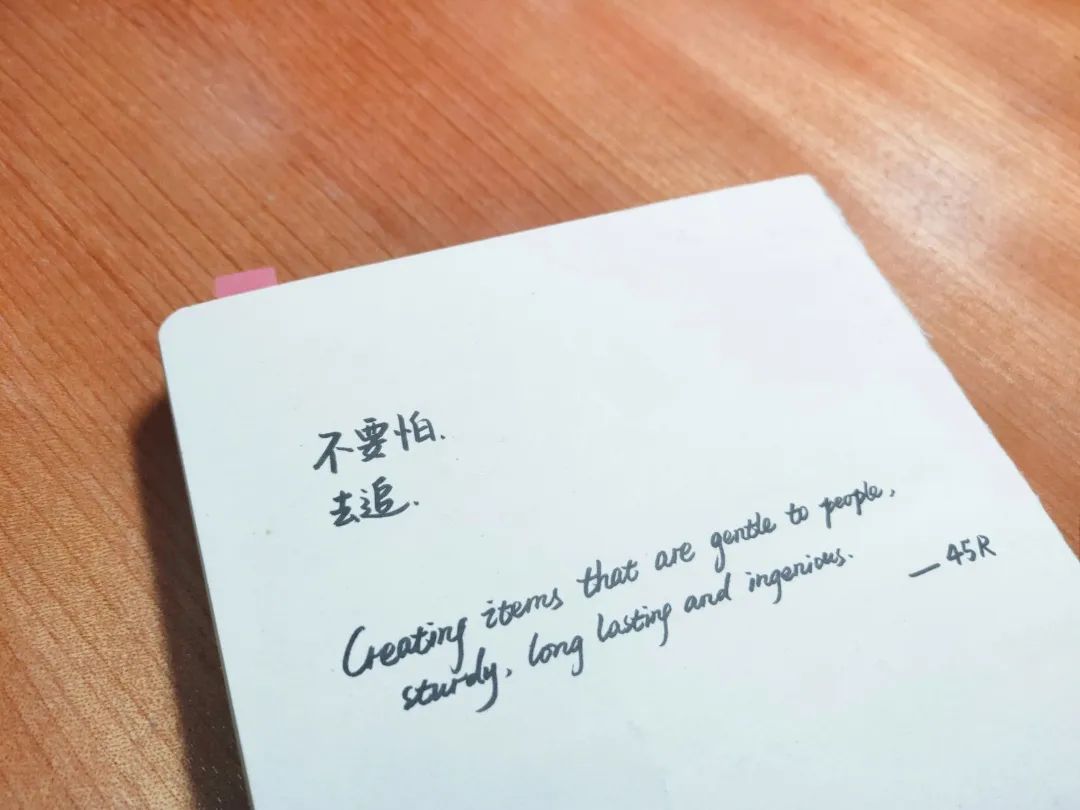 不要怕.
去追.
Creating items that are gentle to people,
sturdy, long lasting and ingenious.
—45R